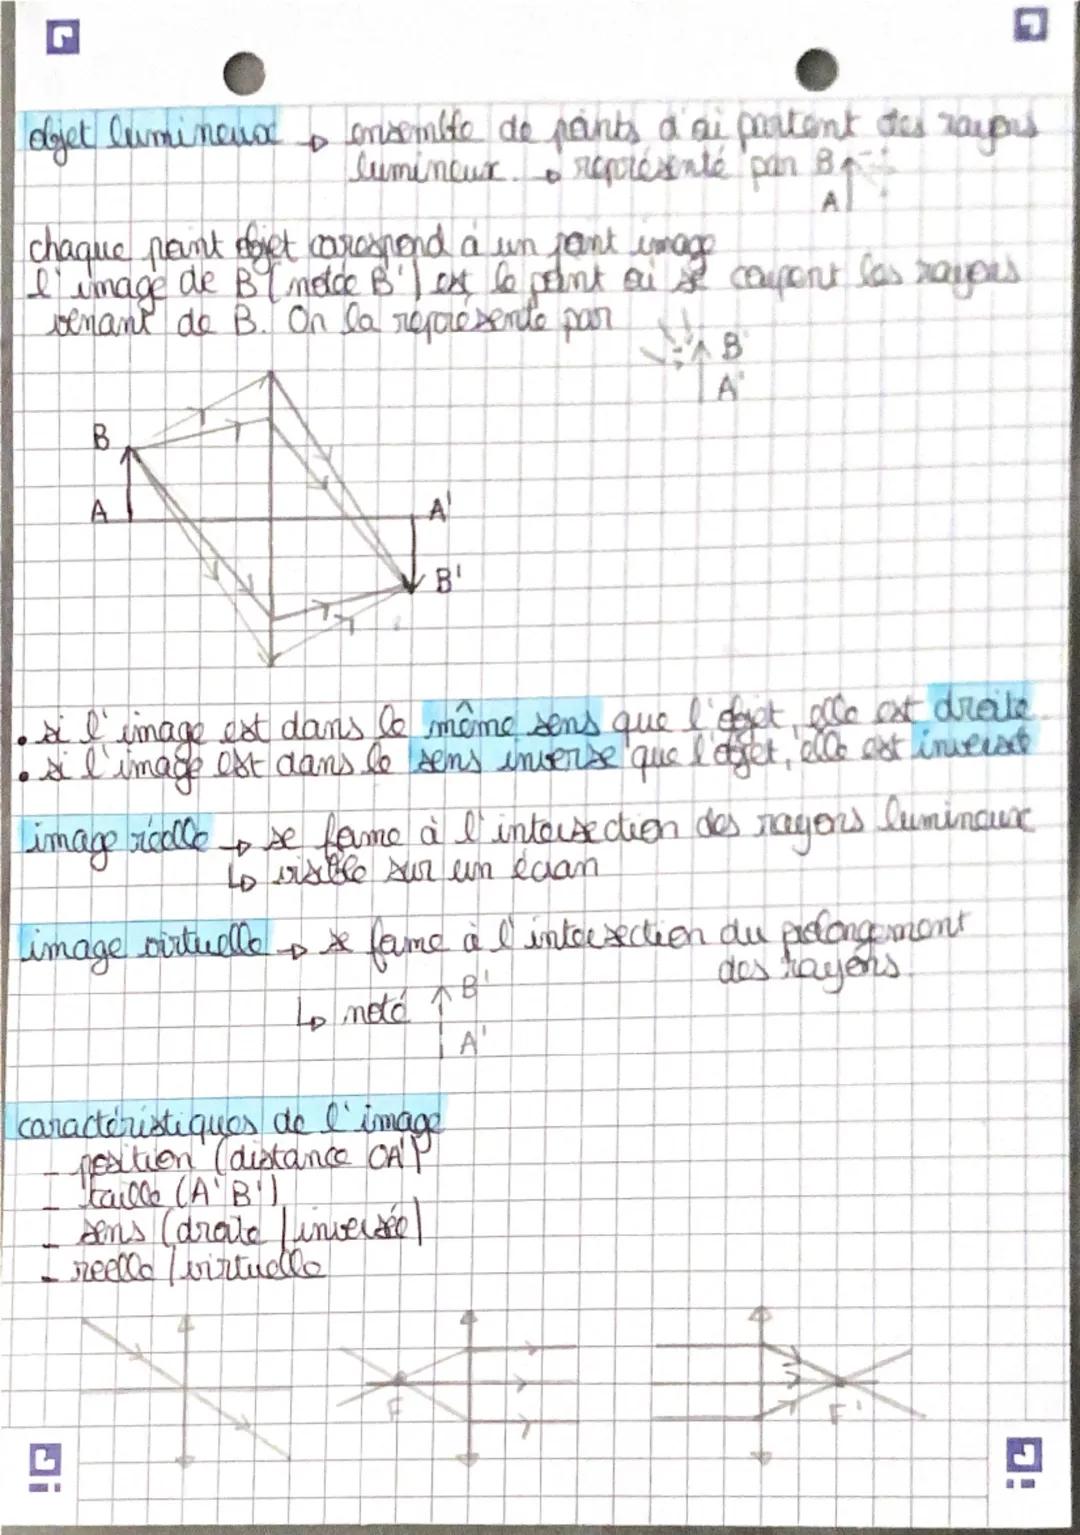 objet lumineux → ensemble de points d'où partent des rayons
lumineux. → représenté par B
A
chaque point objet correspond à un point image
l'image de B (notée B') est le point où se coupent les rayons
venant de B. On la représente par
B'
A'
B
A
A'
B'
• si l'image est dans le même sens que l'objet, elle est droite.
• si l'image est dans le sens inverse que l'objet, elle est inversée
image réelle → se forme à l'intersection des rayons lumineux
↳ visible sur un écran
image virtuelle → se forme à l'intersection du prolongement
des rayons.
↳ noté B'
A'
caractéristiques de l'image
- position (distance OA')
- taille (A'B')
- sens (droite / inversée)
- réelle / virtuelle
F
F'